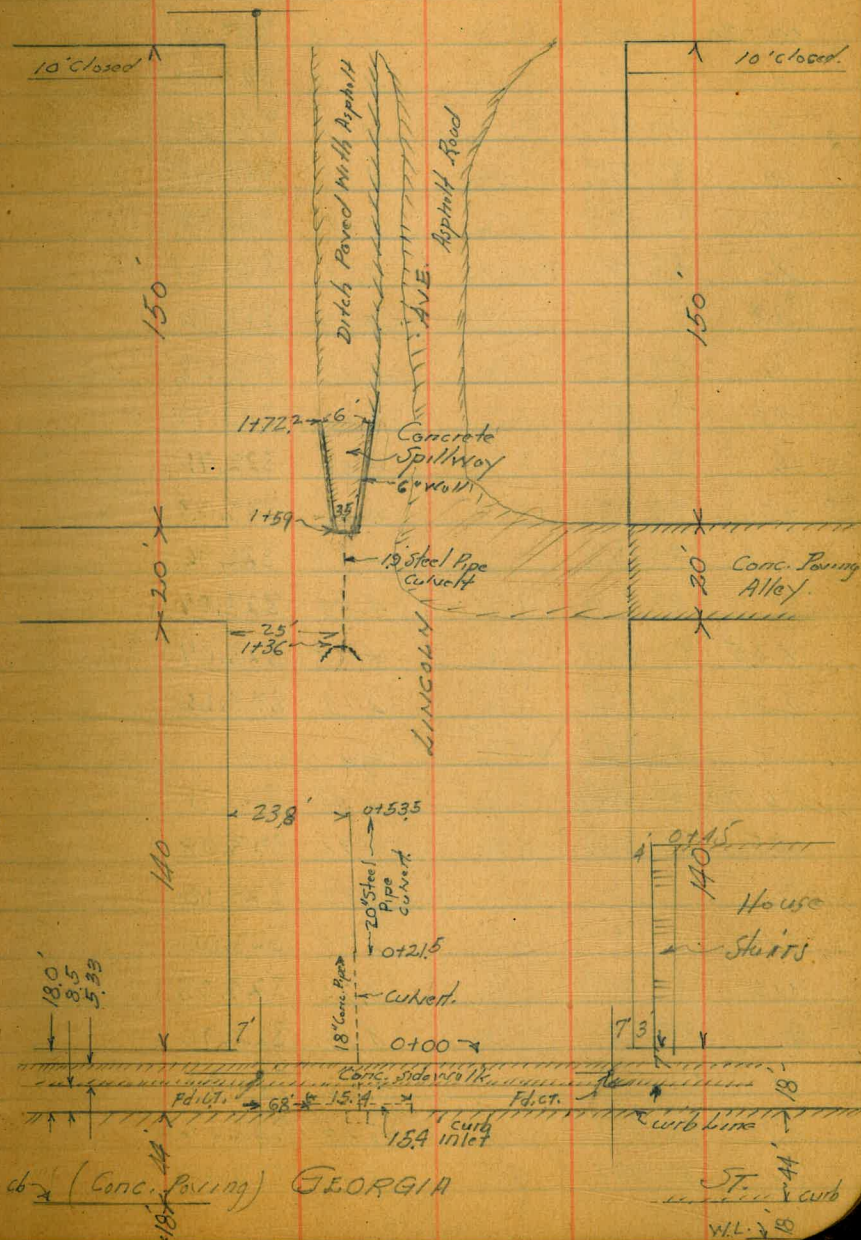 10' Closed
10' Closed.
Ditch Paved With Asphalt
Asphalt Road
AVE.
150'
150'
1+72.2
6'
Concrete
Spillway
6" Wall
1+59
3.5
20'
Steel Pipe
Culvert
20'
Conc. Paving
Alley.
25'
1+36
LINCOLN
23.8'
0+53.5
20" Steel
Pipe
Culvert
140
0+21.5
18" Conc. Pipe
Culvert.
4'
0+45
140
House
Stairs
18.0'
8.5
5.33
7'
0+00
7'
3'
7'
Conc. Sidewalk
Fd. CT.
6.8'
15.4
Fd. CT.
18'
15.4 curb
inlet
Curb Line
44'
cb
(Conc. Paving)
GEORGIA
ST.
44'
curb
18'
W.L.
18'